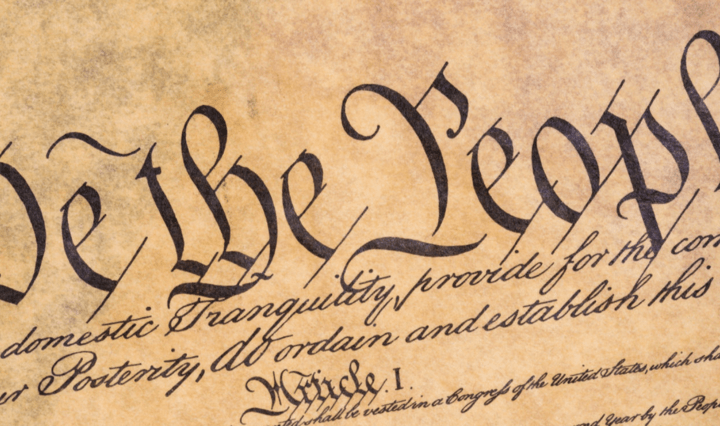 We the Peopl
domestic Tranquility, provide for the com
ur Posterity, do ordain and establish this
Article. I.
shall be vested in a Congress of the United States, which sha
Year by the Peop